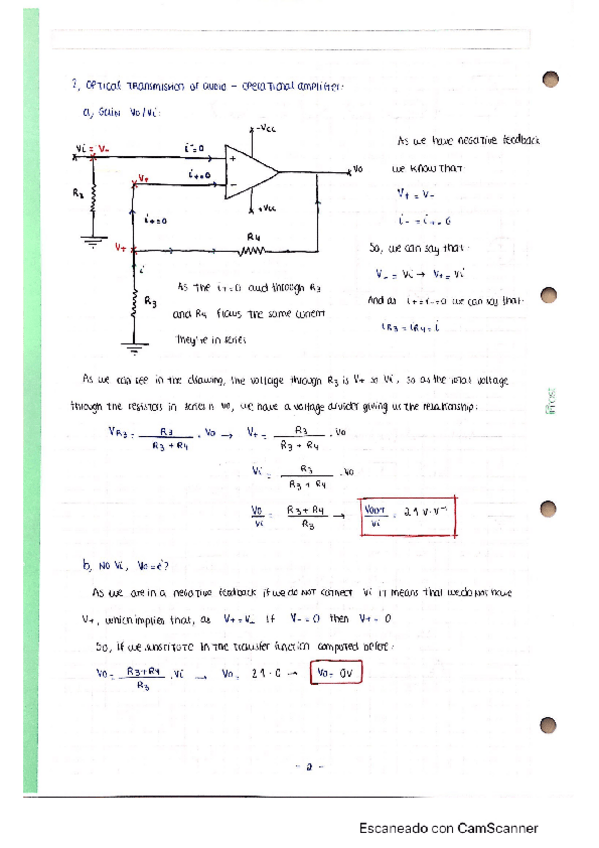 2, OPTICAL TRANSMISION OF AUDIO - OPERATIONAL AMPLIFIER:
a, GAIN Vo/Vi:
-Vcc
As we have negative feedback
Vi = V-
i-=0
+
Vo
we know that:
V+
i+=0
-
R2
+Vcc
V+ = V-
i- = i+ = 0
i+=0
R4
So, we can say that:
V+
V- = Vi → V+ = Vi
i
As the i+=0 and through R3
And as i+=i-=0 we can say that:
R3
and R4 flows the same current
iR3 = iR4 = i
they're in series
As we can see in the drawing, the voltage through R3 is V+ so Vi, so as the total voltage
through the resistors in series is Vo, we have a voltage divider giving us the relationship:
VR3 = R3 / R3 + R4 . Vo → V+ = R3 / R3 + R4 . Vo
Vi = R3 / R3 + R4 . Vo
Vo / Vi = R3 + R4 / R3 → Vout / Vi = 21 V·V⁻¹
b, NO Vi, Vo=¿?
As we are in a negative feedback if we do not connect Vi it means that we do not have
V+, which implies that, as V+=V- if V- = 0 then V+ = 0
So, if we substitute in the transfer function computed before:
Vo = R3+R4 / R3 . Vi → Vo = 21 · 0 → Vo = 0V
- 2 -
Escaneado con CamScanner